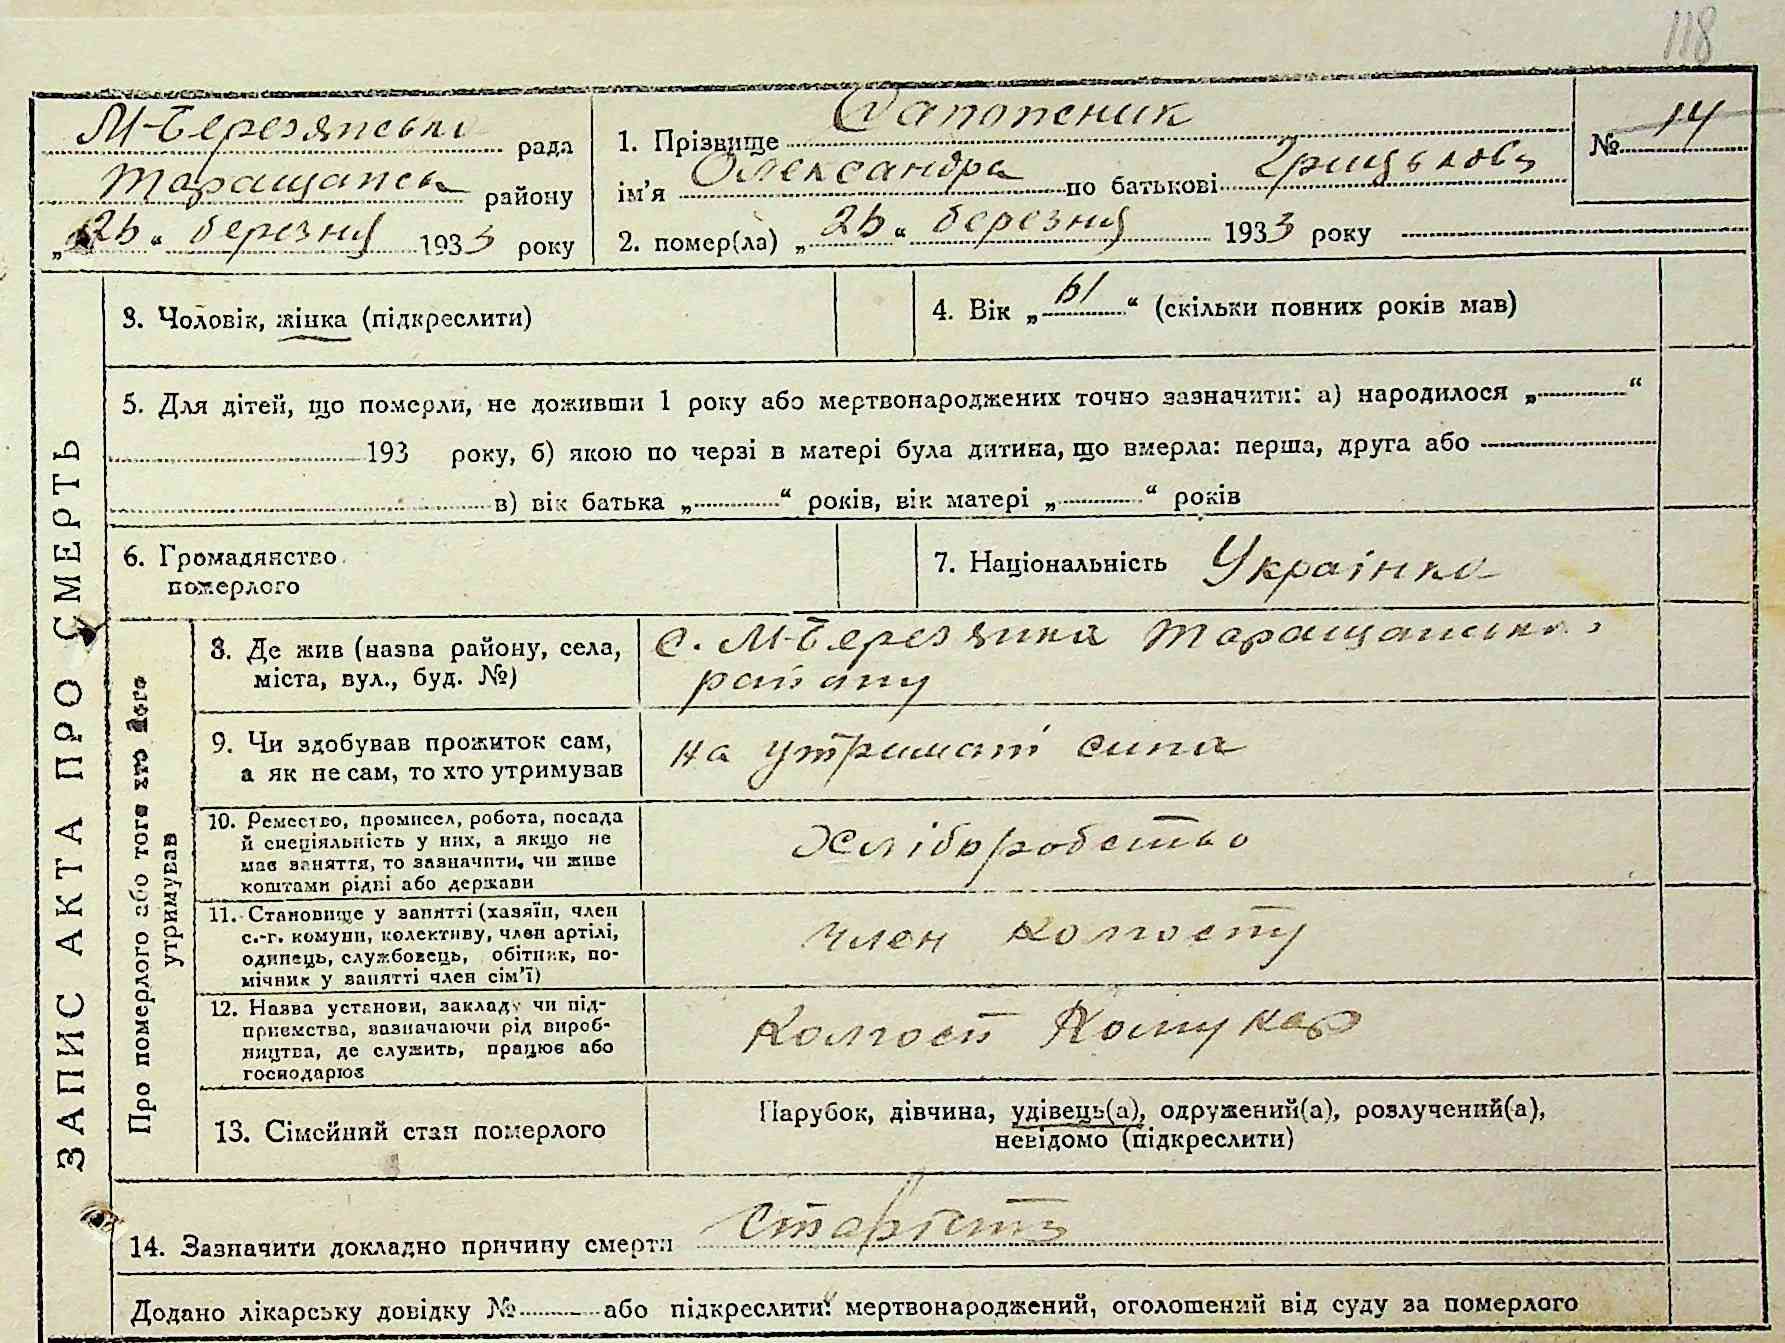 118
М-Березянська рада
Таращанськ району
„26“ березня 1933 року
1. Прізвище Сапопсник
ім'я Олександра по батькові Грицькова
2. помер(ла) „26“ березня 1933 року
№ 14
3. Чоловік, жінка (підкреслити)
4. Вік „61“ (скільки повних років мав)
5. Для дітей, що померли, не доживши 1 року або мертвонароджених точно зазначити: а) народилося „ “
193 року, б) якою по черзі в матері була дитина, що вмерла: перша, друга або
в) вік батька „ “ років, вік матері „ “ років
6. Громадянство
померлого
7. Національність Українка
ЗАПИС АКТА ПРО СМЕРТЬ
Про померлого або того хто його
утримував
8. Де жив (назва району, села,
міста, вул., буд. №)
с. М-Березянка Таращанського
району
9. Чи здобував прожиток сам,
а як не сам, то хто утримував
на утримані сина
10. Ремество, промисел, робота, посада
й спеціяльність у них, а якщо не
має заняття, то зазначити, чи живе
коштами рідні або держави
Хліборобство
11. Становище у занятті (хазяїн, член
с.-г. комуни, колективу, член артілі,
одинець, службовець, обітник, по-
мічник у занятті член сім'ї)
член колгоспу
12. Назва установи, закладу чи під-
приємства, зазначаючи рід вироб-
ництва, де служить, працює або
господарює
Колгосп Комунар
13. Сімейний стан померлого
Парубок, дівчина, удівець(а), одружений(а), розлучений(а),
невідомо (підкреслити)
14. Зазначити докладно причину смерти Старість
Додано лікарську довідку № або підкреслити: мертвонароджений, оголошений від суду за померлого